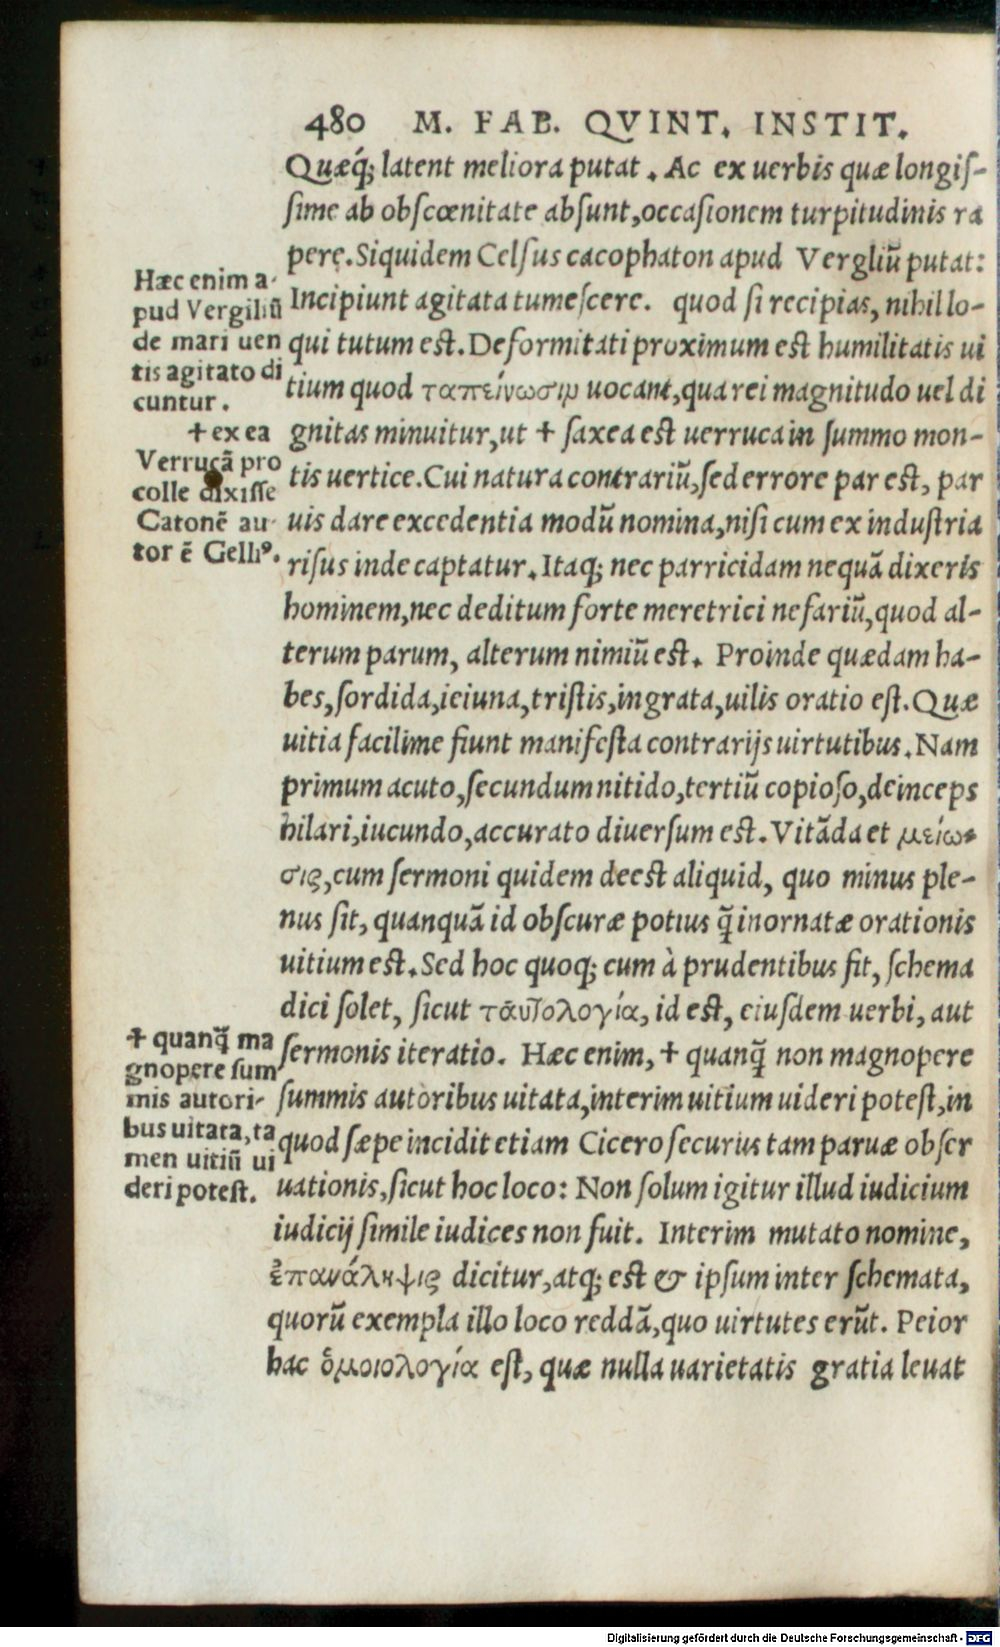 480 M. FAB. QVINT. INSTIT.
Quæq; latent meliora putat. Ac ex uerbis quæ longiſ-
ſime ab obſcœnitate abſunt, occaſionem turpitudinis ra
pere. Siquidem Celſus cacophaton apud Vergliũ putat:
Incipiunt agitata tumeſcere. quod ſi recipias, nihil lo-
qui tutum eſt. Deformitati proximum eſt humilitatis ui
tium quod ταπείνωσιν uocant, qua rei magnitudo uel di
gnitas minuitur, ut + ſaxea eſt uerruca in ſummo mon-
tis uertice. Cui natura contrariũ, ſed errore par eſt, par
uis dare excedentia modũ nomina, niſi cum ex induſtria
riſus inde captatur. Itaq; nec parricidam nequã dixeris
hominem, nec deditum forte meretrici nefariũ, quod al-
terum parum, alterum nimiũ eſt. Proinde quædam ha-
bes, ſordida, ieiuna, triſtis, ingrata, uilis oratio eſt. Quæ
uitia facilime fiunt manifeſta contrarijs uirtutibus. Nam
primum acuto, ſecundum nitido, tertiũ copioſo, deinceps
hilari, iucundo, accurato diuerſum eſt. Vitãda et μείω-
σις, cum ſermoni quidem deeſt aliquid, quo minus ple-
nus ſit, quanquã id obſcuræ potius q̃ inornatæ orationis
uitium eſt. Sed hoc quoq; cum à prudentibus fit, ſchema
dici ſolet, ſicut ταυτολογία, id eſt, eiuſdem uerbi, aut
ſermonis iteratio. Hæc enim, + quanq̃ non magnopere
ſummis autoribus uitata, interim uitium uideri poteſt, in
quod ſæpe incidit etiam Cicero ſecurius tam paruæ obſer
uationis, ſicut hoc loco: Non ſolum igitur illud iudicium
iudicij ſimile iudices non fuit. Interim mutato nomine,
ἐπανάληψις dicitur, atq; eſt & ipſum inter ſchemata,
quorũ exempla illo loco reddã, quo uirtutes erũt. Peior
hac ὁμοιολογία eſt, quæ nulla uarietatis gratia leuat
Hæc enim a-
pud Vergiliũ
de mari uen
tis agitato di
cuntur.
+ ex ea
Verrucã pro
colle dixiſſe
Catonẽ au-
tor ẽ Gelliꝰ.
+ quanq̃ ma
gnopere ſum
mis autori-
bus uitata, ta
men uitiũ ui
deri poteſt.
Digitalisierung gefördert durch die Deutsche Forschungsgemeinschaft - DFG